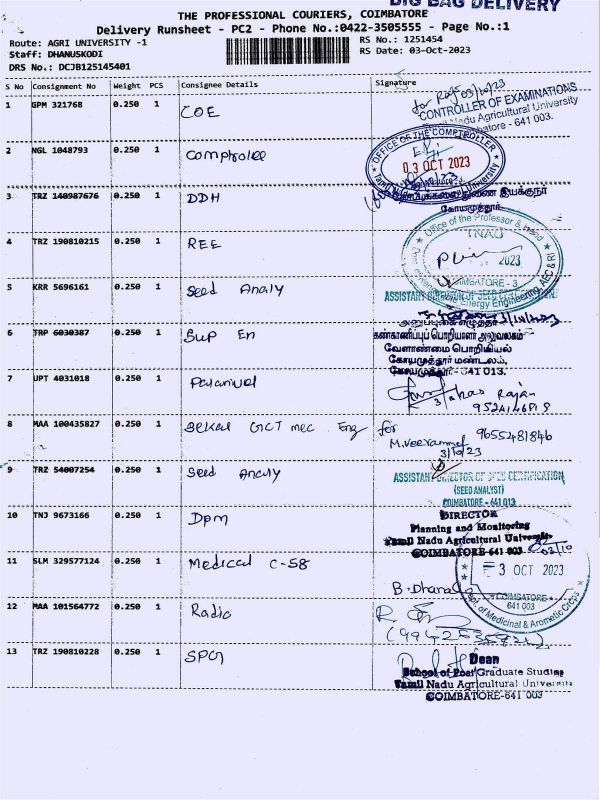 BIG BAG DELIVERY
THE PROFESSIONAL COURIERS, COIMBATORE
Delivery Runsheet - PC2 - Phone No.:0422-3505555 - Page No.:1
Route: AGRI UNIVERSITY -1
Staff: DHANUSKODI
DRS No.: DCJB125145401
RS No.: 1251454
RS Date: 03-Oct-2023
S No Consignment No Weight PCS Consignee Details Signature
1 GPM 321768 0.250 1 COE
for 03/10/23
CONTROLLER OF EXAMINATIONS
Tamil Nadu Agricultural University
Coimbatore - 641 003.
2 NGL 1048793 0.250 1 Comptrolee
OFFICE OF THE COMPTROLLER
03 OCT 2023
Tamil Nadu Agricultural University
3 TRZ 140987676 0.250 1 DDH
இயக்குநர்
கோயமுத்தூர்
4 TRZ 190810215 0.250 1 REE
Office of the Professor & Head
TNAU
2023
COIMBATORE - 3
Energy Engineering, AEC & RI
5 KRR 5696161 0.250 1 Seed Analy
ASSISTANT DIRECTOR OF SEED CERTIFICATION
6 TRP 6030387 0.250 1 Sup En
3/10/2023
கண்காணிப்புப் பொறியாளர் அலுவலகம்
வேளாண்மை பொறியியல்
கோயமுத்தூர் மண்டலம்,
கோயமுத்தூர் - 641 013.
7 UPT 4031018 0.250 1
Rajan
8 MAA 100435827 0.250 1 GCT mec Eng
for
M.Veerammal 9655481846
3/10/23
9 TRZ 54007254 0.250 1 Seed Analy
ASSISTANT DIRECTOR OF SEED CERTIFICATION
(SEED ANALYST)
COIMBATORE - 641 013
10 TNJ 9673166 0.250 1 Dpm
DIRECTOR
Planning and Monitoring
Tamil Nadu Agricultural University
COIMBATORE-641 003
03/10
11 SLM 329577124 0.250 1 Medical C-58
3 OCT 2023
B. Dhanal
COIMBATORE -
641 003
Dept. of Medicinal & Aromatic Crops
12 MAA 101564772 0.250 1 Radio
13 TRZ 190810228 0.250 1 SPG
Dean
School of Post Graduate Studies
Tamil Nadu Agricultural University
COIMBATORE-641 003